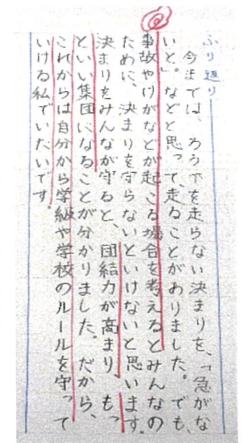 ふり返り
今までは、ろう下を走らない決まりを、「急がな
いと」などと思って走ることがありました。でも、
事故やけがなどが起こる場合を考えるとみんなの
ために、決まりを守らないといけないと思います。
決まりをみんなが守ると、団結力が高まり、もっ
といい集団になることが分かりました。だから、
これからは自分から学級や学校のルールを守って
いける私でいたいです。